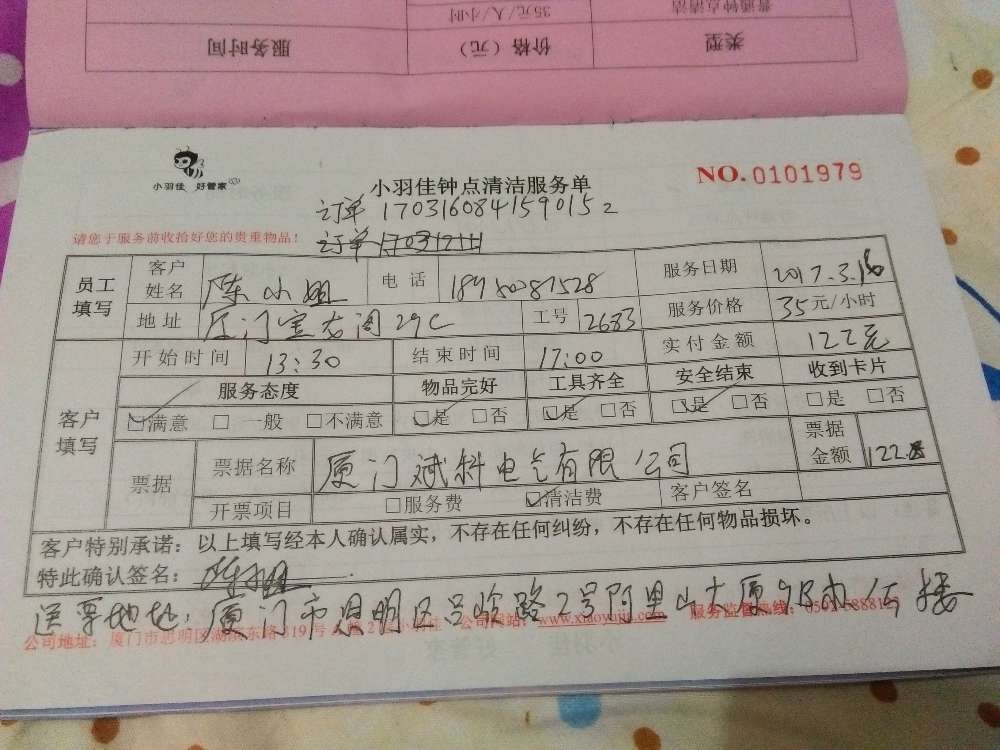 普通钟点清洁 35元/人/小时
类型 价格（元） 服务时间
小羽佳 好管家
小羽佳钟点清洁服务单
NO. 0101979
订单 170316084159015 2
请您于服务前收拾好您的贵重物品！
订单
员工填写 客户姓名 陈小姐 电话 服务日期 2017.3.16
地址 29C 工号 2683 服务价格 35元/小时
客户填写 开始时间 13:30 结束时间 17:00 实付金额 122元
服务态度 物品完好 工具齐全 安全结束 收到卡片
☑满意 □一般 □不满意 ☑是 □否 ☑是 □否 ☑是 □否 □是 □否
票据 票据名称 厦门斌科电气有限公司 票据金额
开票项目 □服务费 ☑清洁费 客户签名
客户特别承诺：以上填写经本人确认属实，不存在任何纠纷，不存在任何物品损坏。
特此确认签名：陈小姐
送票地址：厦门市思明区吕岭路2号阿里山大厦
公司地址：厦门市思明区湖滨东路319号 公司网站：www.xiaoyujia.com 服务监督热线：
小羽佳 好管家